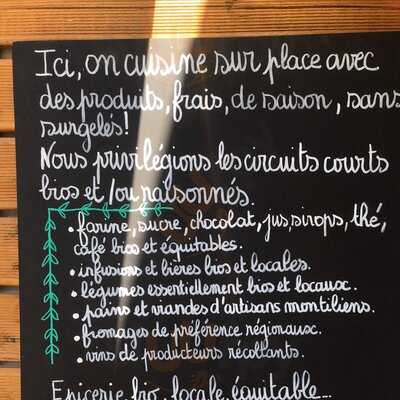 Ici, on cuisine sur place avec
des produits, frais, de saison, sans
surgelés!
Nous privilégions les circuits courts
bios et /ou raisonnés.
• farine, sucre, chocolat, jus, sirops, thé,
café bios et équitables.
• infusions et bières bios et locales.
• légumes essentiellement bios et locaux.
• pains et viandes d'artisans montiliens.
• fromages de préférence régionaux.
• vins de producteurs récoltants.
Epicerie bio, locale, équitable...